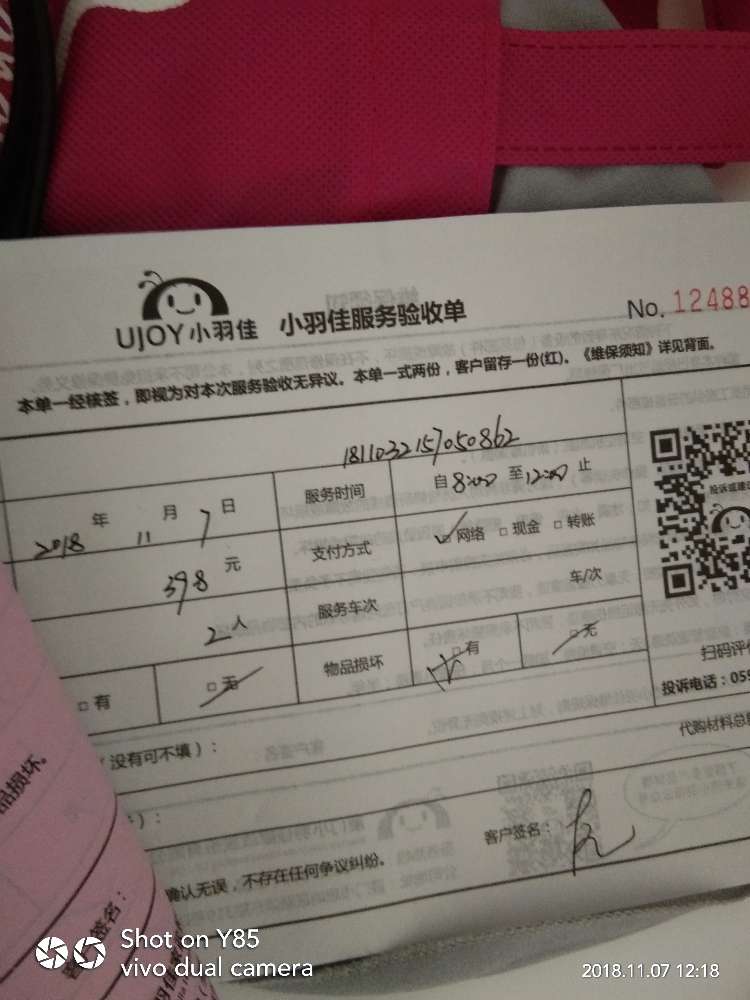 UJOY小羽佳 小羽佳服务验收单 No. 12488
本单一经核签，即视为对本次服务验收无异议。本单一式两份，客户留存一份(红)。《维保须知》详见背面。
1811032157050862
2018 年 11 月 7 日 服务时间 自 8:00 至 12:00 止
398 元 支付方式 网络 现金 转账
2人 服务车次 车/次
有 无 物品损坏 有 无
投诉或建议
扫码评价
投诉电话：059
（没有可不填）：
代购材料总
品损坏。
）：
客户签名：
确认无误，不存在任何争议纠纷。
签名：
Shot on Y85
vivo dual camera
2018.11.07 12:18